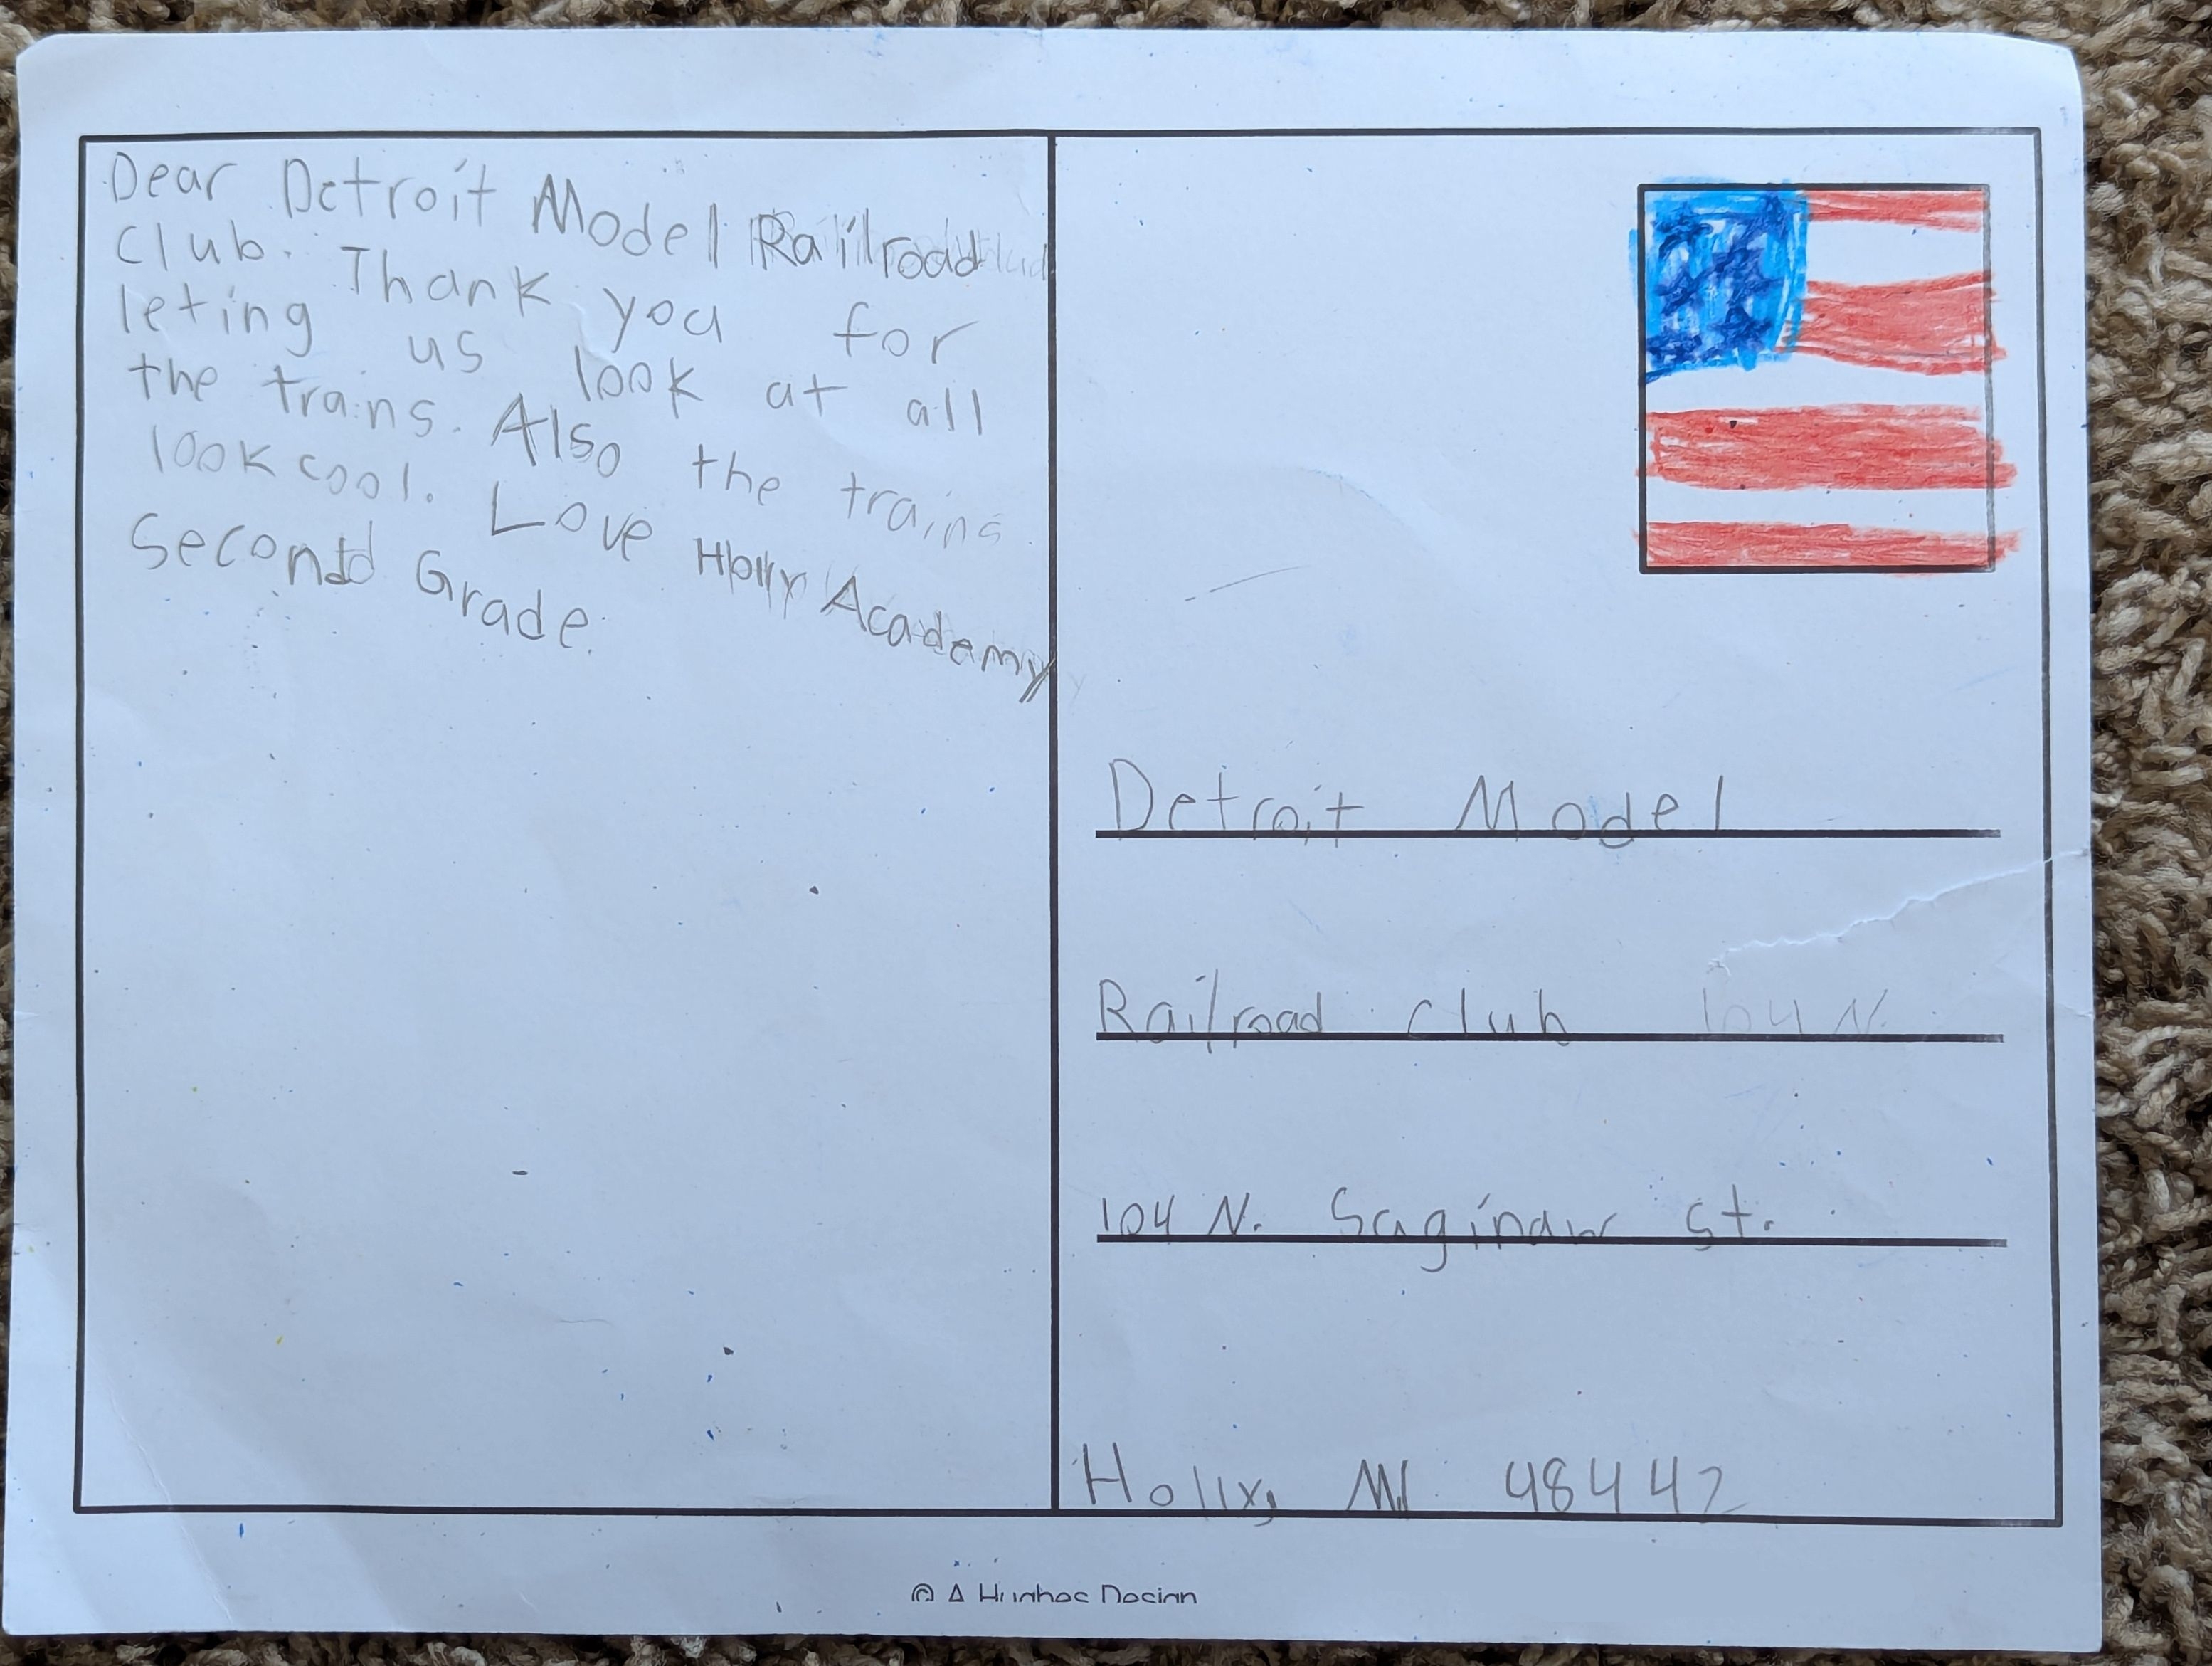 Dear Detroit Model Railroad
Club. Thank you for
leting us look at all
the trains. Also the trains
look cool. Love Holly Academy
Second Grade.
Detroit Model
Railroad club 104 N.
104 N. Saginaw St.
Holly, MI 48442
© A Hughes Design